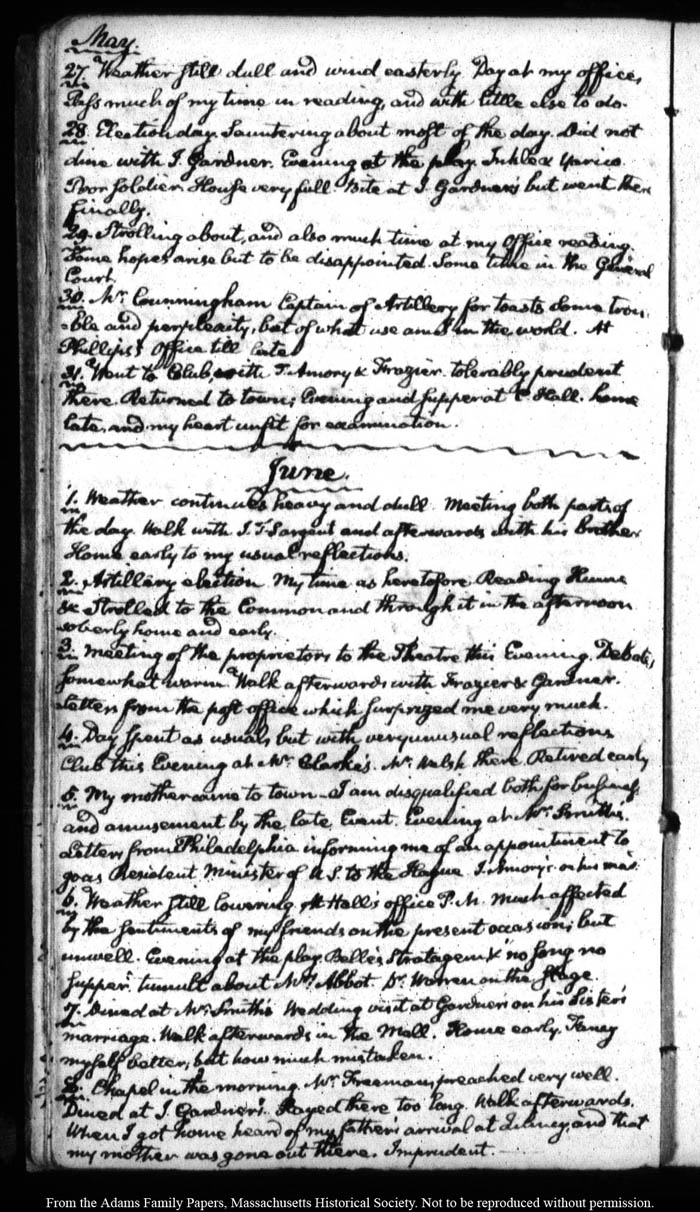 May.
27. Weather still dull and wind easterly. Day at my office,
Pass much of my time in reading, and with little else to do.
28. Election day. Sauntering about most of the day. Did not
dine with J. Gardner. Evening at the play. Inkle & Yarico.
Poor Soldier. House very full. at J. Gardner's but went there
finally.
29. Strolling about, and also much time at my Office reading.
Some hopes arise but to be disappointed. Some time in the General
Court.
30. Mr. Cunningham Captain of Artillery for toasts some trou-
-ble and perplexity, but of what use am I in the world. At
Phillips's Office till late
31. Went to Club, with J. Amory & Frazier. tolerably prudent
there. Returned to town; Evening and supper at Hall. home
late, and my heart unfit for examination.
June.
1. Weather continues heavy and dull. Meeting both parts of
the day. Walk with J. T. Sargent and afterwards with his brother
Home early to my usual reflections.
2. Artillery election. My time as heretofore. Reading Hume
&c Strolled to the Common and through it in the afternoon
soberly home and early.
3. Meeting of the proprietors to the Theatre this Evening. Debate,
somewhat warm. Walk afterwards with Frazier & Gardner.
Letters from the post office which surprized me very much.
4. Day spent as usual, but with very unusual reflections
Club this Evening at Mr. Clarke's. Mr. Welsh there. Retired early
5. My mother came to town—I am disqualified both for business
and amusement by the late Event. Evening at Mr. Smith's.
Letters from Philadelphia informing me of an appointment to
go as Resident Minister of U S. to the Hague. J. Amory's on his
6. Weather still lowering. At Hall's office P. M. much affected
by the sentiments of my friends on the present occasion; but
unwell. Evening at the play. Belles Stratagem & no song no
supper. tumult about Mrs. Abbot. Dr. Warren on the Stage.
7. Dined at Mr. Smith's. Wedding visit at Gardner's on his Sister's
marriage. Walk afterwards in the Mall. Home early. Fancy
myself better, but how much mistaken.
8. Chapel in the morning. Mr. Freeman, preached very well.
Dined at J. Gardner's. Stayed there too long. Walk afterwards.
When I got home heard of my father's arrival at Quincy, and that
my mother was gone out there. Imprudent.
From the Adams Family Papers, Massachusetts Historical Society. Not to be reproduced without permission.